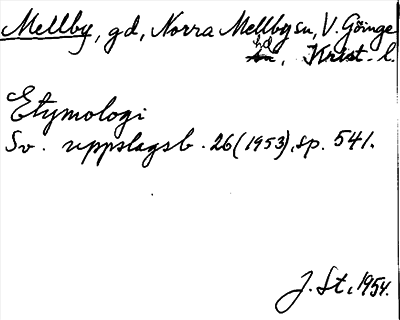 Mellby, gd, Norra Mellby sn, V. Göinge
hd, Krist. l.
Etymologi
Sv. uppslagsb. 26 (1953), sp. 541.
J. St. 1954.